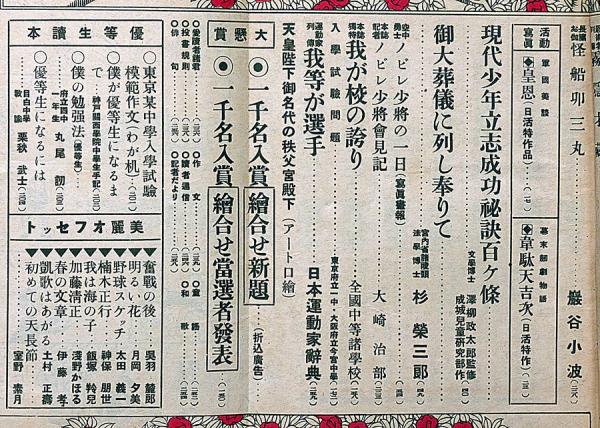 長篇お伽 怪船卯三丸 巖谷小波
活動寫眞
軍國美談 ◉皇恩(日活特作品)
幕末劍劇物語 ◈韋駄天吉次(日活特作)
現代少年立志成功秘訣百ケ條 文學博士 澤柳政太郎監修 成城兒童研究部作
御大葬儀に列し奉りて 宮內省諸陵頭 法學博士 杉榮三郞
空中勇士 ノビレ少將の一日(寫眞畫報)
本誌記者 ノビレ少將會見記 大崎治部
本誌獨特 我が校の誇り 全國中等諸學校
入學試驗問題 東京府立一中・大阪府立今宮中學
運動家列傳 我等が選手 日本運動家辭典
天皇陛下御名代の秩父宮殿下(アートロ繪)
大懸賞
◉一千名入賞 繪合せ新題 (折込廣告)
◉一千名入賞 繪合せ當選者發表
◇愛讀者諸君
◇投書規則
◇俳句
◇作文
◇讀者通信
◇記者だより
◇童謠
◇和歌
優等生讀本
◎東京某中學入學試驗
模範作文(わが机)
◎僕が優等生になるまで 神戶關西學院中學生手記
◎僕の勉强法(優等生) 府立四中一年生 丸尾 㓛
◎優等生になるには 目白中學敎諭 栗秋武士
美麗オフセット
▼奮戰の後 吳羽麓郞
▼明るい花 月岡夕美
▼野球スケッチ 太田義一
▼楠木正行 神保朋世
▼我は海の子 飯塚羚兒
▼加藤淸正 淺野かほる
▼春の文章 伊藤孝
▼凱歌はあがる 土村正壽
▼初めての天長節 室野壽月